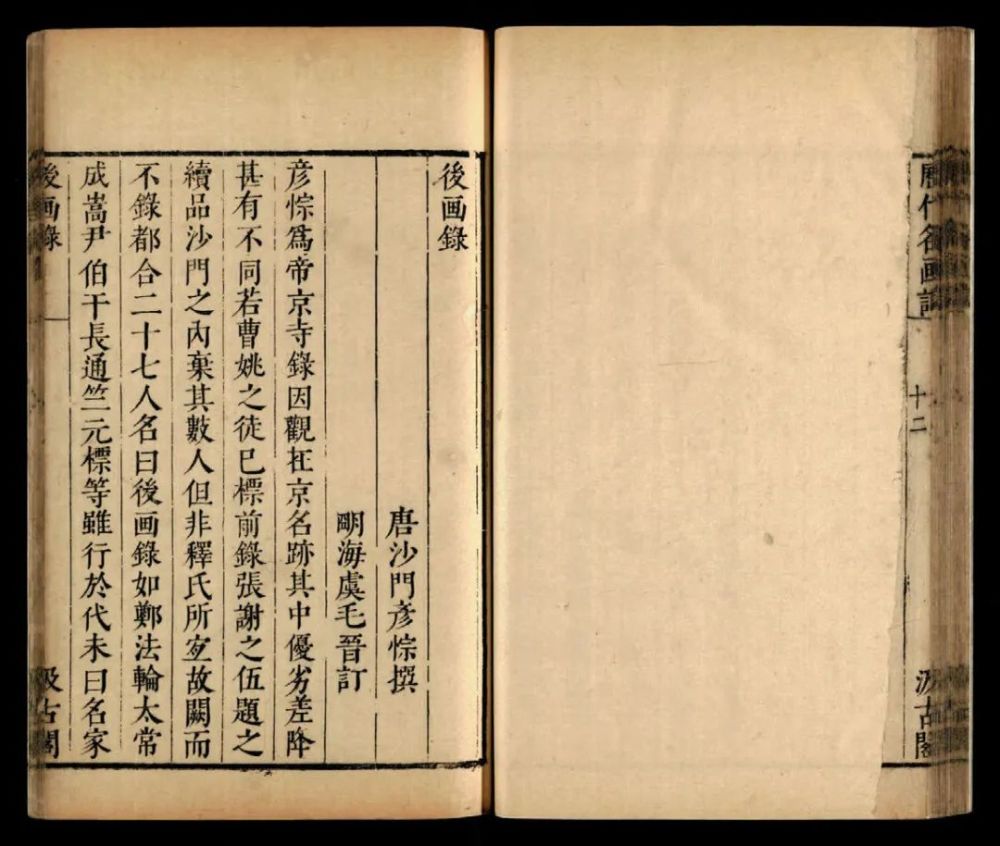 歷代名画記
十二
汲古閣
後画錄
唐沙門彥悰撰
明海虞毛晉訂
彥悰為帝京寺錄因觀在京名跡其中優劣差降
甚有不同若曹姚之徒已標前錄張謝之伍題之
續品沙門之內棄其數人但非釋氏所宐故闕而
不錄都合二十七人名曰後画錄如鄭法輪太常
成嵩尹伯干長通竺元標等雖行於代未曰名家
後画錄
一
汲古閣